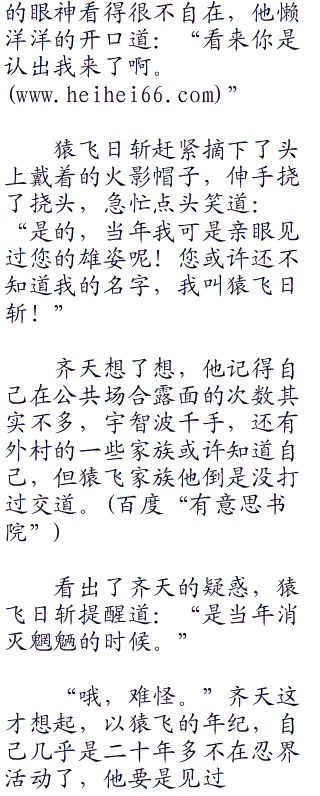 的眼神看得很不自在，他懒
洋洋的开口道：“看来你是
认出我来了啊。
(www.heihei66.com)”
猿飞日斩赶紧摘下了头
上戴着的火影帽子，伸手挠
了挠头，急忙点头笑道：
“是的，当年我可是亲眼见
过您的雄姿呢！您或许还不
知道我的名字，我叫猿飞日
斩！”
齐天想了想，他记得自
己在公共场合露面的次数其
实不多，宇智波千手，还有
外村的一些家族或许知道自
己，但猿飞家族他倒是没打
过交道。(百度“有意思书
院”)
看出了齐天的疑惑，猿
飞日斩提醒道：“是当年消
灭魍魉的时候。”
“哦，难怪。”齐天这
才想起，以猿飞的年纪，自
己几乎是二十年多不在忍界
活动了，他要是见过